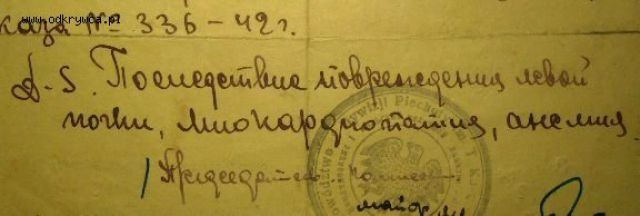 www.odkrywca.pl
каза № 336-42 г.
D-S. Последствие повреждения левой
почки, миокардиопатия, анемия
Председатель комис
майор